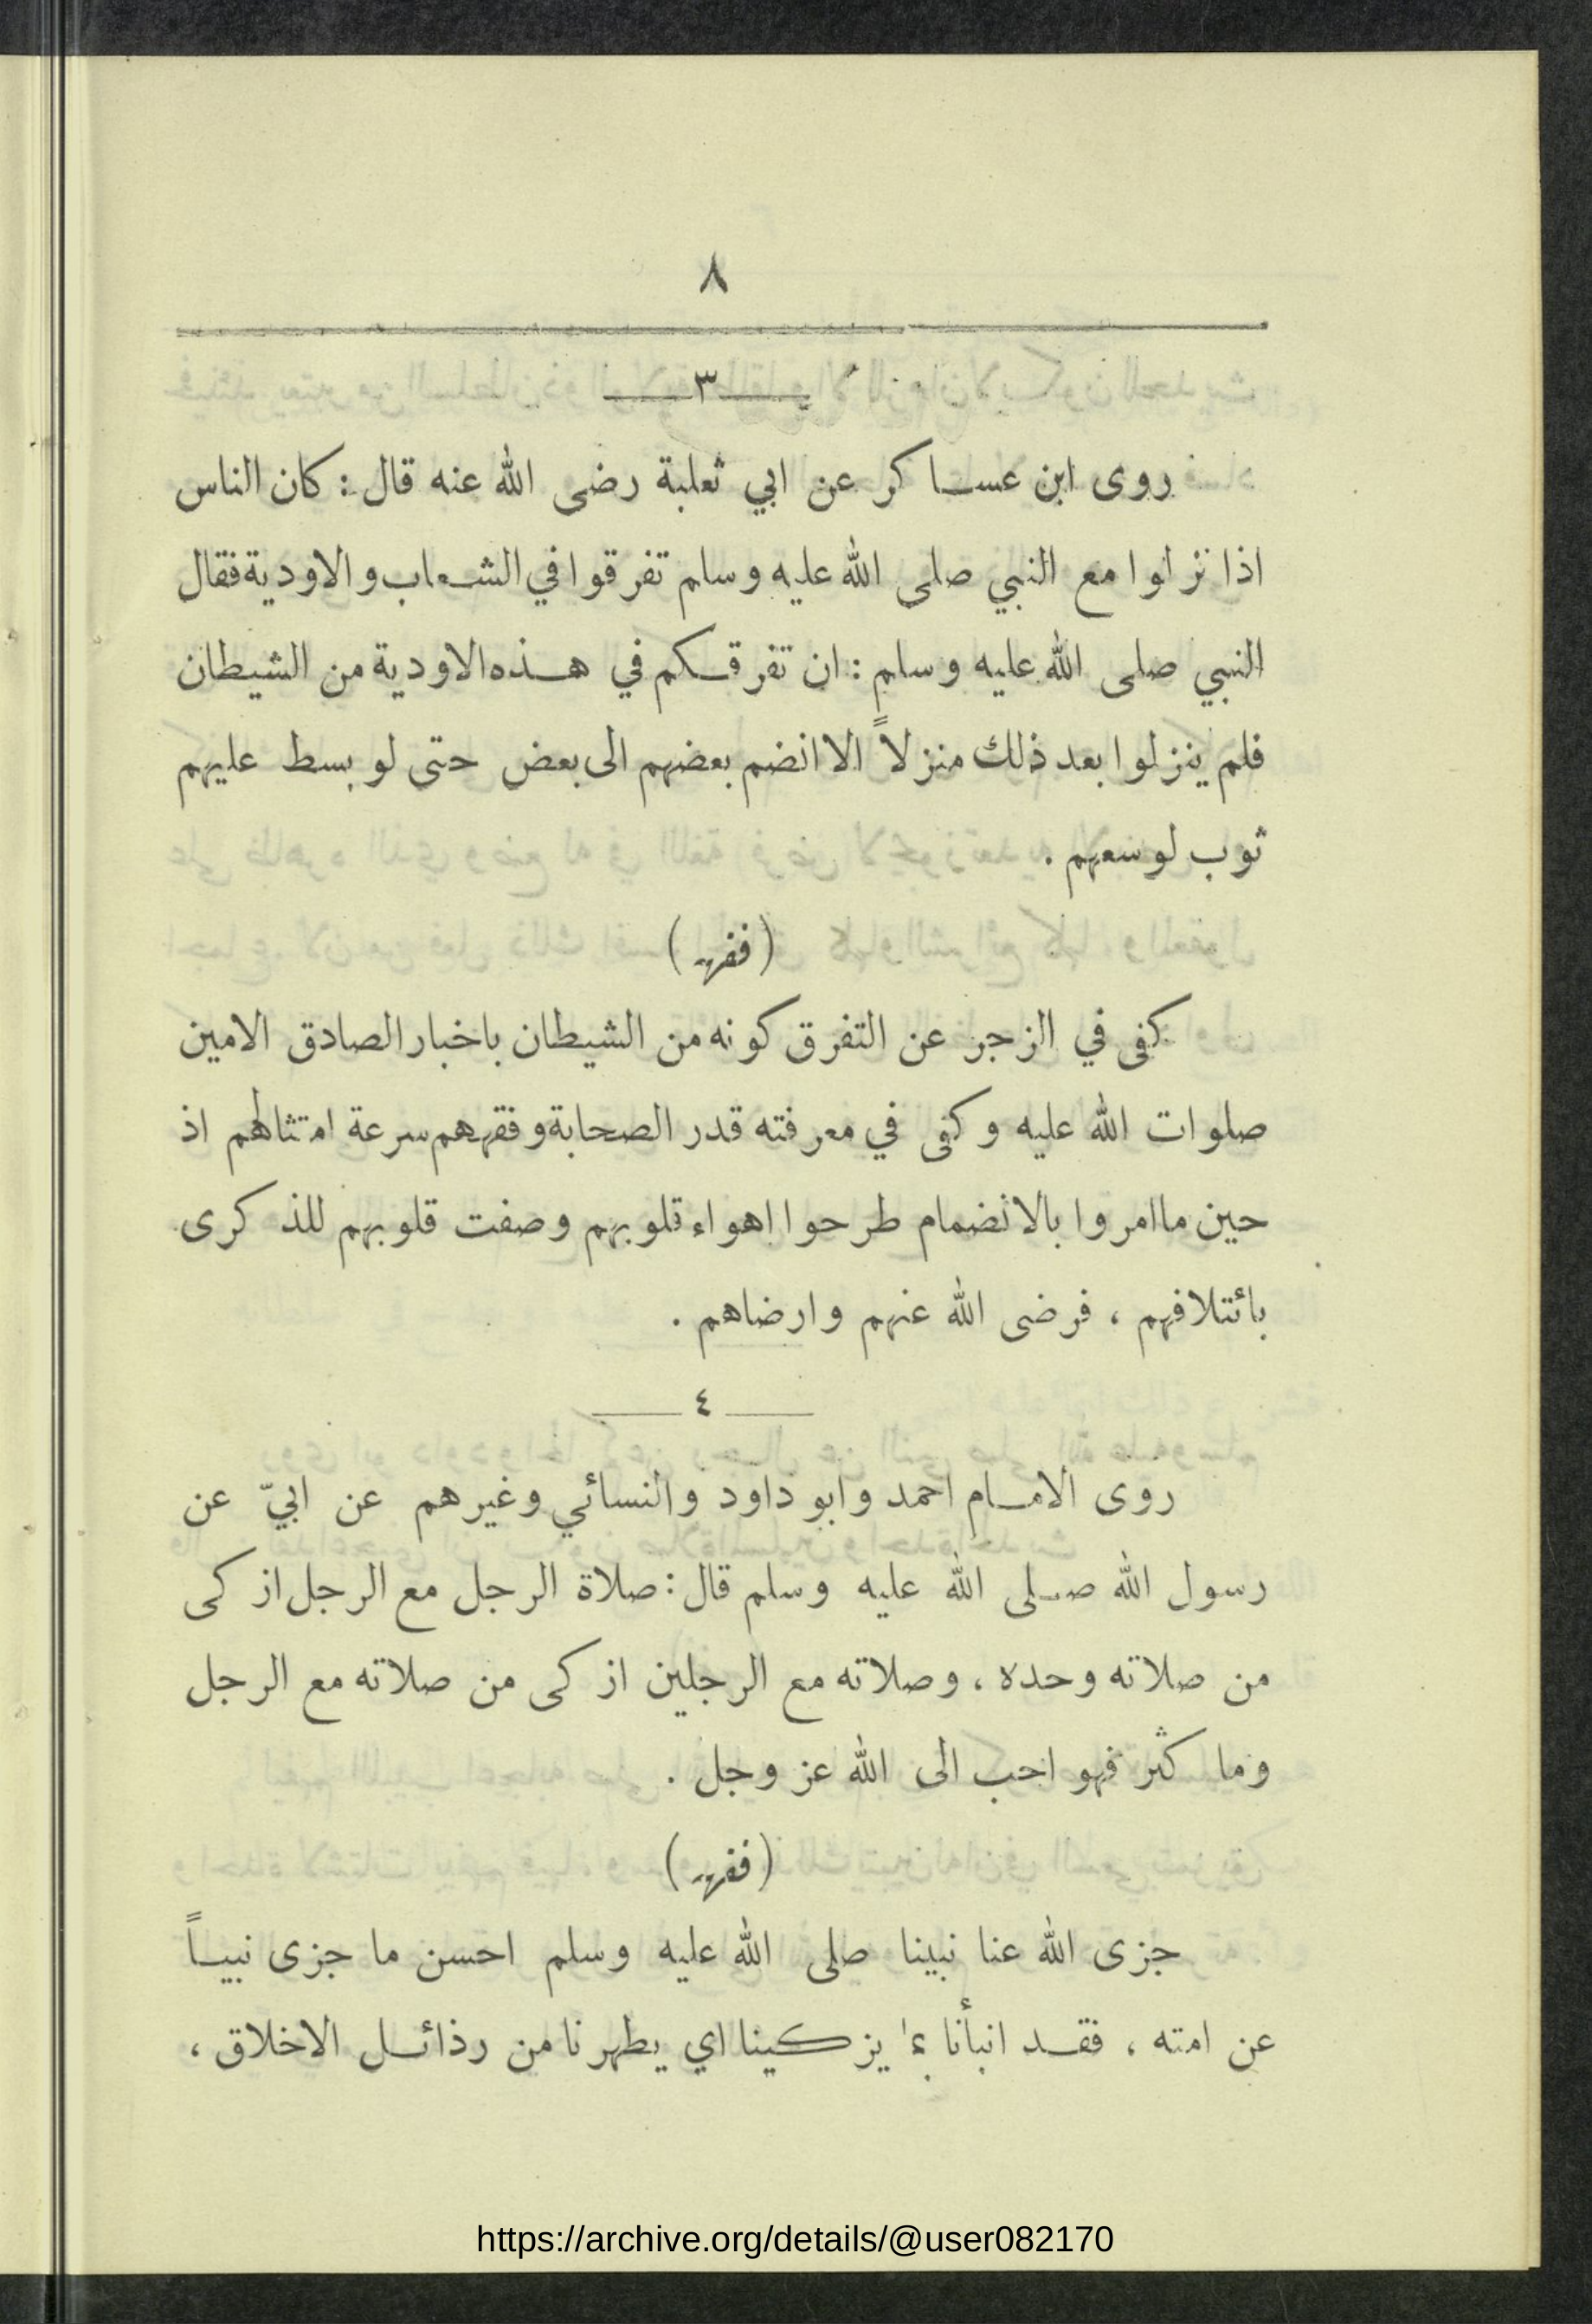 ٨
٣
روى ابن عساكر عن ابي ثعلبة رضى الله عنه قال : كان الناس
اذا نزلوا مع النبي صلى الله عليه وسلم تفرقوا في الشعاب والاودية فقال
النبي صلى الله عليه وسلم : ان تفرقكم في هذه الاودية من الشيطان
فلم ينزلوا بعد ذلك منزلاً الا انضم بعضهم الى بعض حتى لو بسط عليهم
ثوب لوسعهم .
( فقهه )
كفى في الزجر عن التفرق كونه من الشيطان باخبار الصادق الامين
صلوات الله عليه وكفى في معرفته قدر الصحابة وفقههم سرعة امتثالهم اذ
حين ما امروا بالانضمام طرحوا اهواء قلوبهم وصفت قلوبهم للذكرى
بائتلافهم ، فرضى الله عنهم وارضاهم .
٤
روى الامام احمد وابو داود والنسائي وغيرهم عن ابيّ عن
رسول الله صلى الله عليه وسلم قال : صلاة الرجل مع الرجل ازكى
من صلاته وحده ، وصلاته مع الرجلين ازكى من صلاته مع الرجل
وما كثر فهو احب الى الله عز وجل .
( فقهه )
جزى الله عنا نبينا صلى الله عليه وسلم احسن ما جزى نبياً
عن امته ، فقد انبأنا بما يزكينا اي يطهرنا من رذائل الاخلاق ،
https://archive.org/details/@user082170